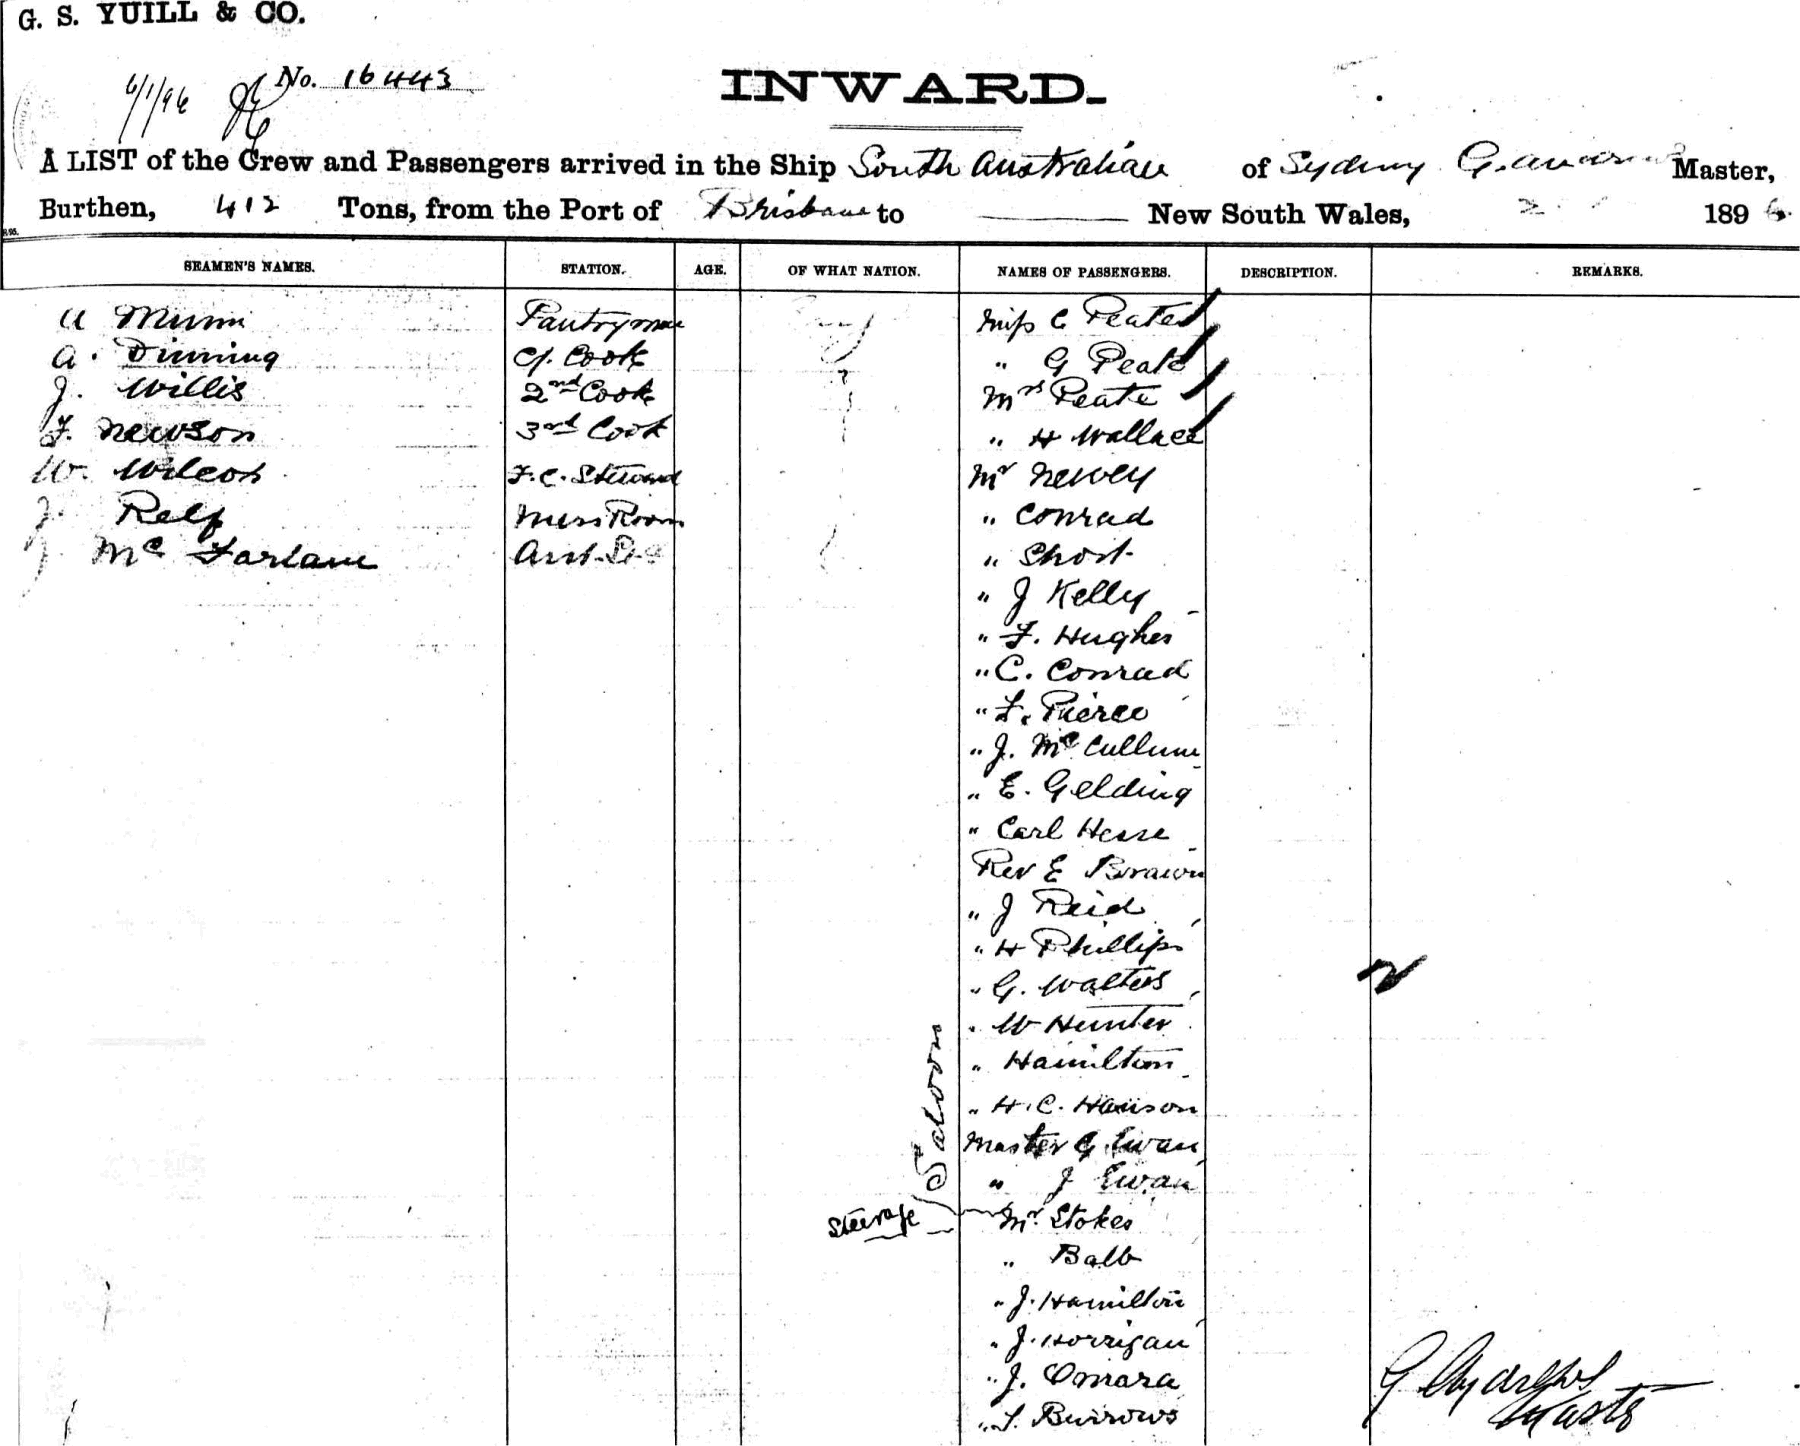 G. S. YUILL & CO.
6/1/96 No. 16443
INWARD.
A LIST of the Crew and Passengers arrived in the Ship South Australian of Sydney G. Andrews Master,
Burthen, 412 Tons, from the Port of Brisbane to New South Wales, 2 1896.
SEAMEN'S NAMES. STATION. AGE. OF WHAT NATION. NAMES OF PASSENGERS. DESCRIPTION. REMARKS.
Munn Pantryman Miss C Peate
A. Dinning Cf. Cook " G Peate
J. Willis 2nd Cook Mrs Peate
F. Newson 3rd Cook " H Wallace
W. Wilcox F.C. Steward Mr Newey
J. Relf Mess Room " Conrad
J Mc Farlane Asst. " Short
" J Kelly
" F. Hughes
" C. Conrad
" F. Pierce
" J. Mc Cullum
" E. Gelding
" Carl Hesse
Rev E Brown
" J Reid
" H Phillips
" G. Walters
" W Hunter
" Hamilton
" H. C. Hanson
Master G Ewan
" J Ewan
Saloon
Steerage Mr. Stokes
" Balb
" J. Hamilton
" J. Horrigan
" J. Omara
" J. Burrows
G Andrews
Master